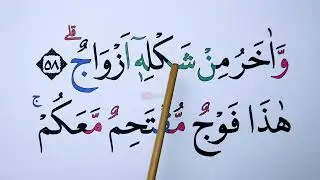 وَّاٰخَرُ مِنْ شَكْلِهٖٓ اَزْوَاجٌ ۗ ﴿٥٨﴾
هٰذَا فَوْجٌ مُّقْتَحِمٌ مَّعَكُمْ ۚ